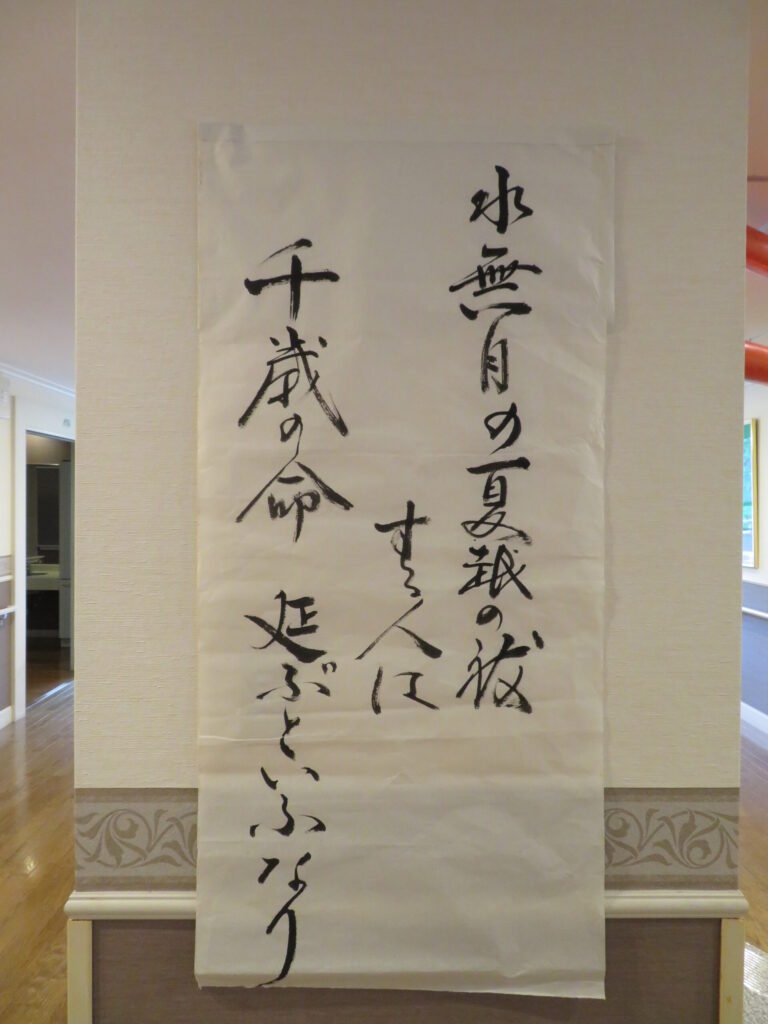 水無月の夏越の祓
する人は
千歳の命 延ぶといふなり